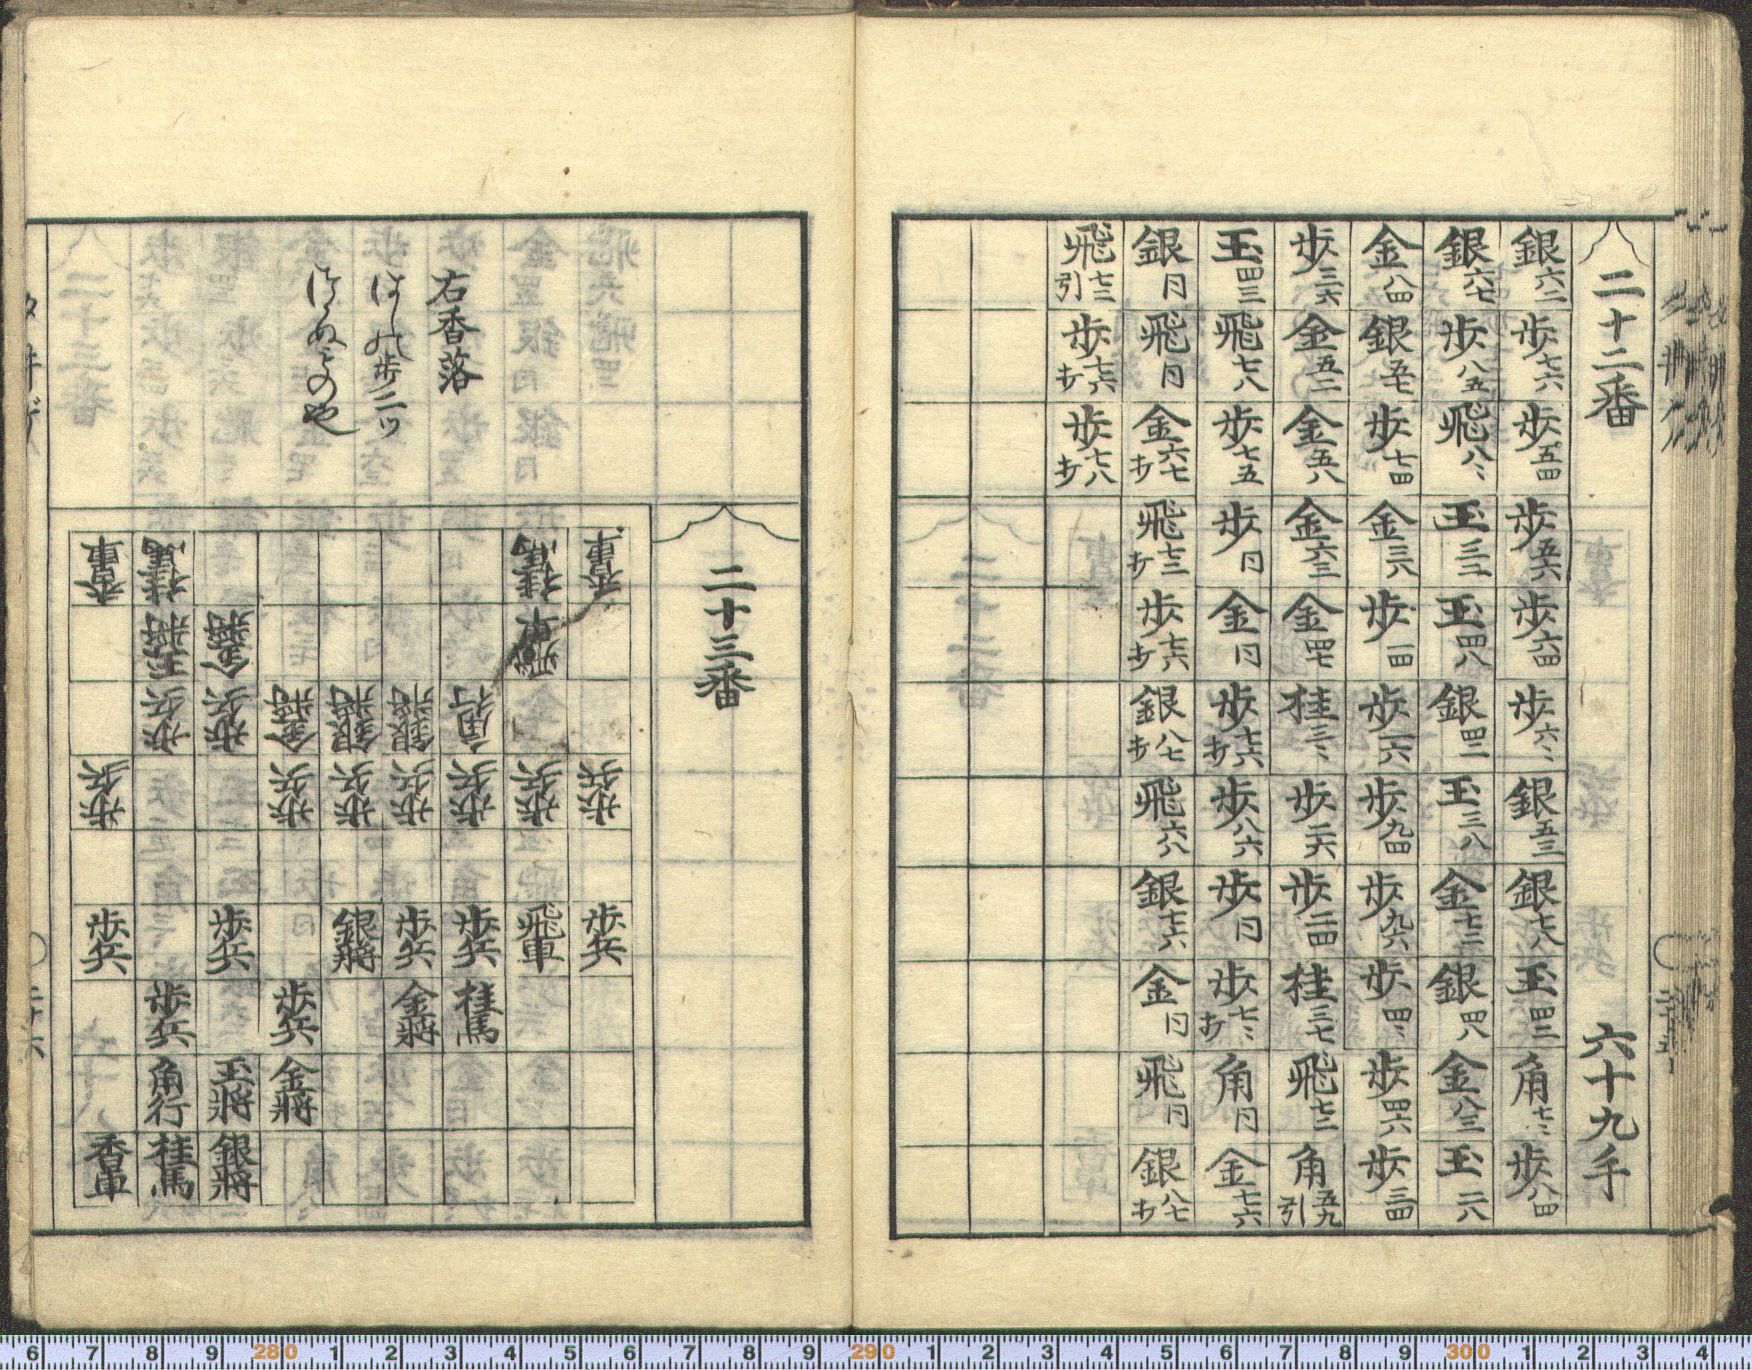 二十二番 六十九手
銀六二 歩七六 歩五四 歩五六 歩六四 歩六〻 銀五三 銀七八 玉四二 角七〻 歩八四
銀六七 歩八五 飛八〻 玉三二 玉四八 銀四二 玉三八 金七二 銀四八 金八三 玉二八
金八四 銀五七 歩七四 金三八 歩一四 歩一六 歩九四 歩九六 歩四〻 歩四六 歩三四
歩三六 金五二 金五八 金六三 金四七 桂三〻 歩二六 歩二四 桂三七 飛七二 角五九引
玉四三 飛七八 歩七五 歩同 金同 歩七六打 歩八六 歩同 歩七〻打 角同 金七六
銀同 飛同 金六七打 飛七二打 歩七六打 銀八七打 飛六八 銀七六 金同 飛同 銀八七打
飛七二引 歩七六打 歩七八打
二十三番
右香落
はしの歩二ツ
香車 歩兵 歩兵
桂馬 飛車 歩兵 飛車
角行 歩兵 歩兵 桂馬
銀將 歩兵 歩兵 金將
銀將 歩兵 銀將
金將 歩兵 歩兵 金將
金將 歩兵 歩兵 玉將 銀將
桂馬 玉將 歩兵 歩兵 角行 桂馬
香車 歩兵 歩兵 香車
6 7 8 9 280 1 2 3 4 5 6 7 8 9 290 1 2 3 4 5 6 7 8 9 300 1 2 3 4